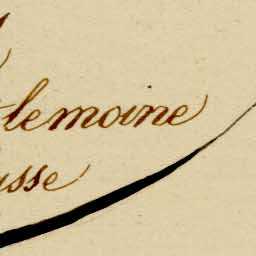 lemoine
usse